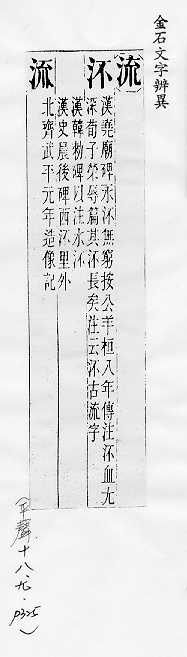 金石文字辨異
流
㳅 漢堯廟碑永㳅無窮按公羊桓八年傳注㳅血尤
深荀子榮辱篇其㳅長矣注云㳅古流字
漢韓勑碑以注水㳅
漢史晨後碑西㳅里外
流 北齊武平元年造像記
(平聲十八.尤.p325)